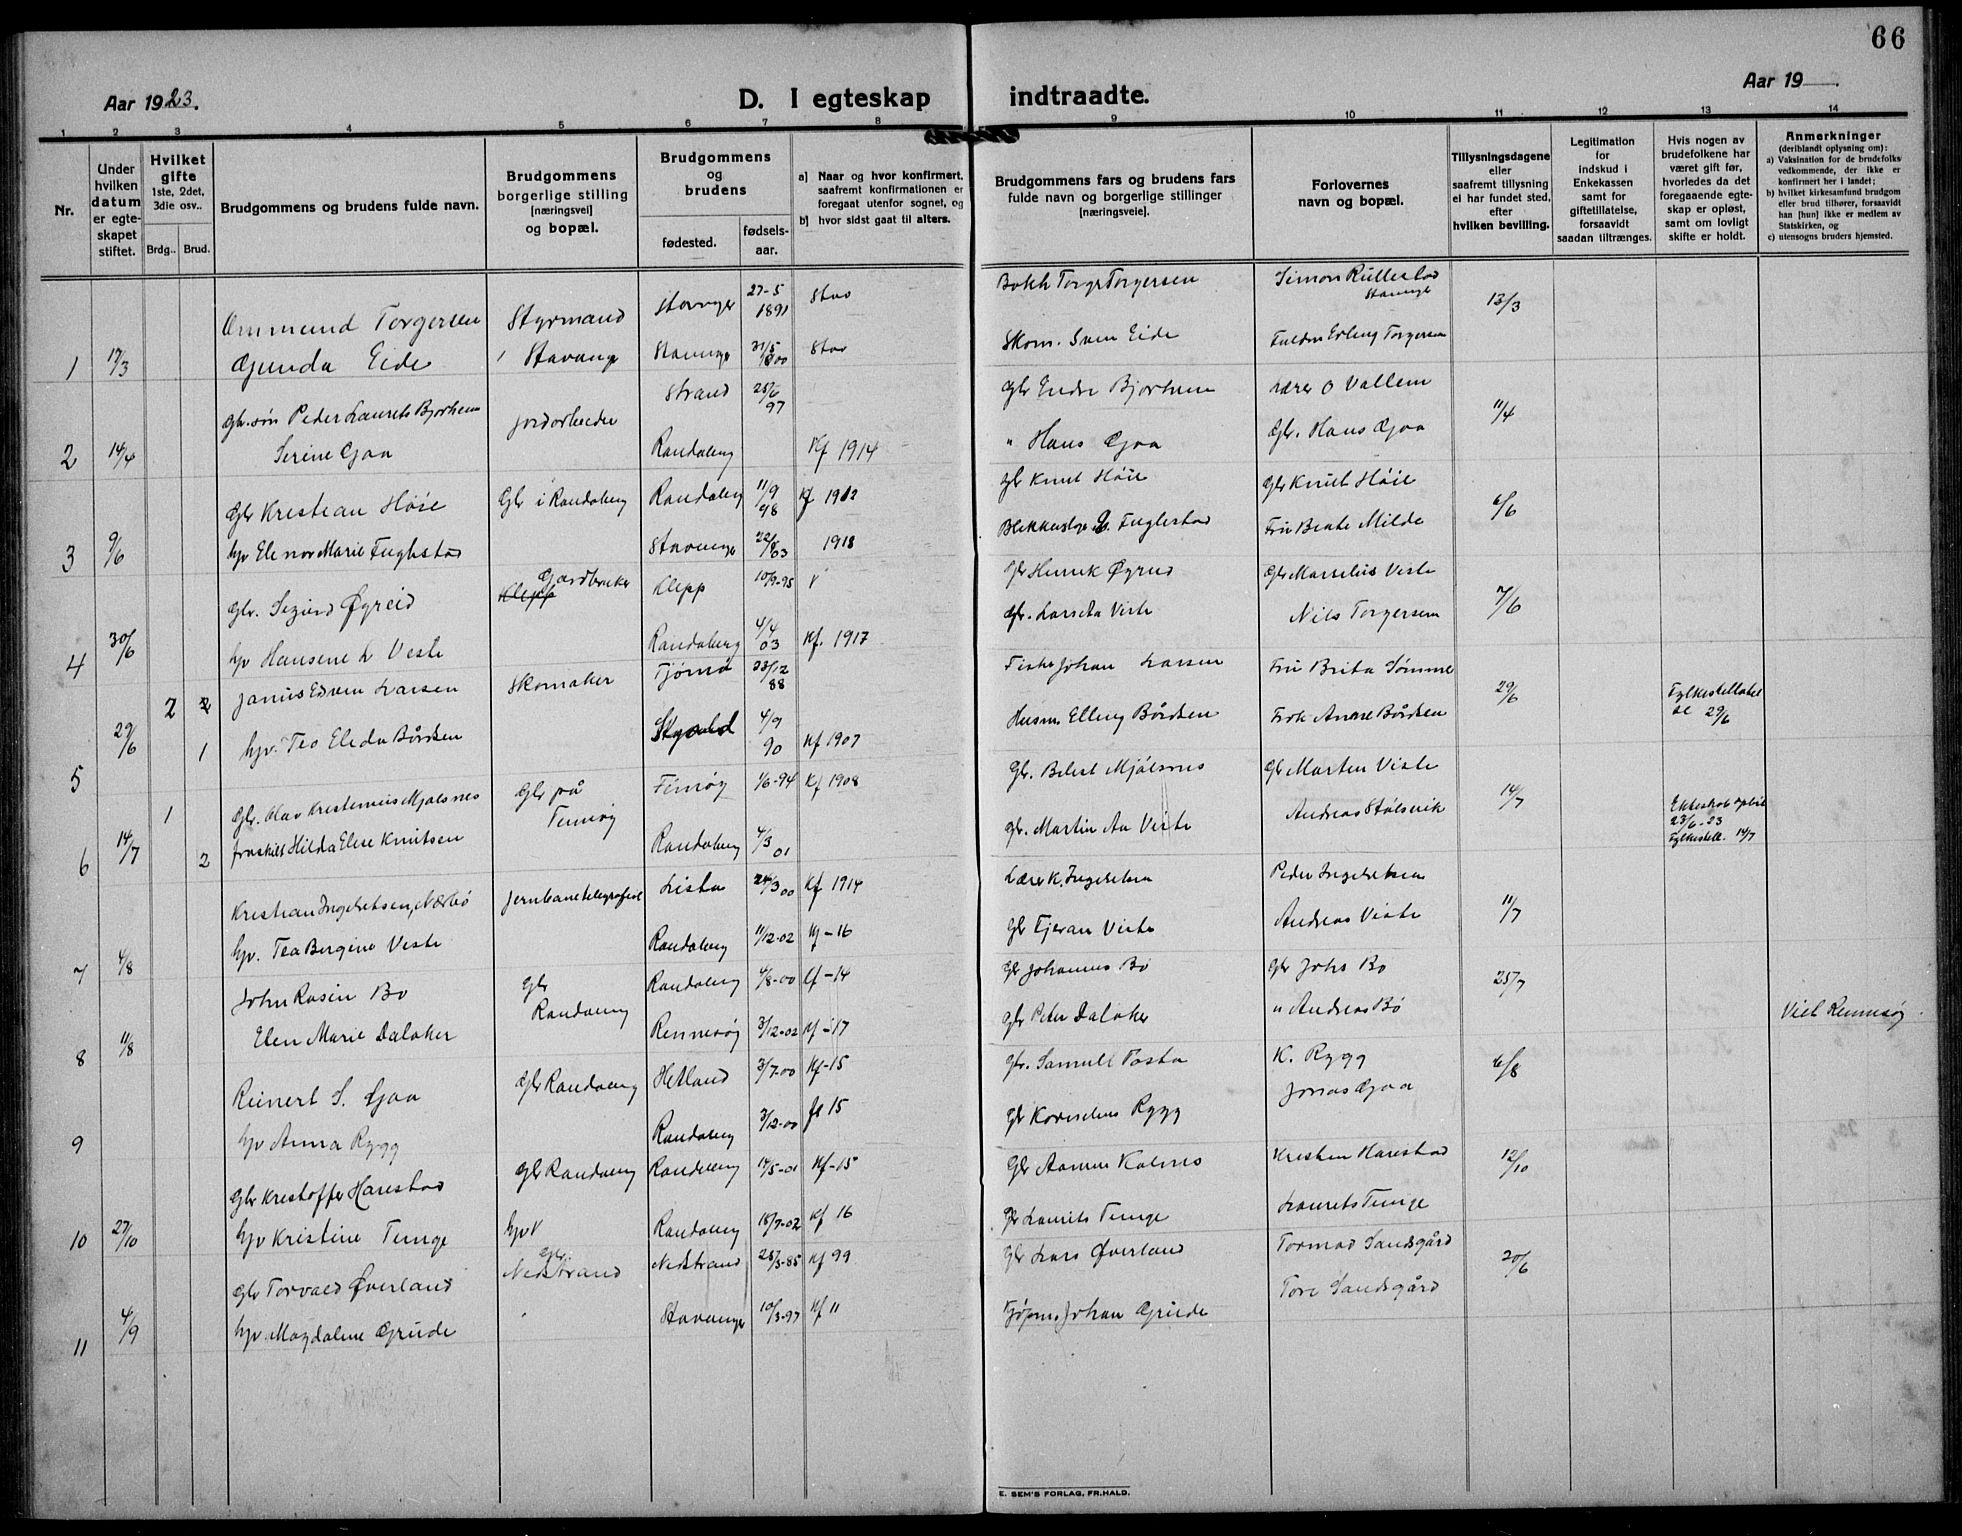 66
Aar 1923.
D. I egteskap indtraadte.
Aar 19   .
1 2 3 4 5 6 7 8 9 10 11 12 13 14
Nr.
Under hvilken datum er egteskapet stiftet.
Hvilket gifte 1ste, 2det, 3die osv..
Brdg.. Brud.
Brudgommens og brudens fulde navn.
Brudgommens borgerlige stilling [næringsvei] og bopæl.
Brudgommens og brudens
fødested. fødsels-aar.
a) Naar og hvor konfirmert, saafremt konfirmationen er foregaat utenfor sognet, og
b) hvor sidst gaat til alters.
Brudgommens fars og brudens fars fulde navn og borgerlige stillinger [næringsveie].
Forlovernes navn og bopæl.
Tillysningsdagene eller saafremt tillysning ei har fundet sted, efter hvilken bevilling.
Legitimation for indskud i Enkekassen samt for giftetillatelse, forsaavidt saadan tiltrænges.
Hvis nogen av brudefolkene har været gift før, hvorledes da det foregaaende egteskap er opløst, samt om lovligt skifte er holdt.
Anmerkninger (deriblandt oplysning om):
a) Vaksination for de brudefolks vedkommende, der ikke er konfirmert her i landet;
b) hvilket kirkesamfund brudgom eller brud tilhører, forsaavidt han [hun] ikke er medlem av Statskirken, og
c) utensogns bruders hjemsted.
Ommund Torgersen Styrmand Stavanger 27-5 1891 Stav Torger Torgersen Simon Rullestad Stavanger 13/3
1 17/3 Gunda Eide Stavanger Stavanger 31/5 Stav Skom. Sven Eide Erling Torgersen
Gbr.søn Peder Laurits Bjorheim Jordarbeider Strand 25/6 97 Gbr Endre Bjorheim O Vallem 11/4
2 14/4 Serine Goa Randaberg Kf 1914 " Hans Goa Gbr. Hans Goa
Gbr Kristian Høie Gbr i Randaberg Randaberg 11/9 98 Kf 1912 Gbr Knut Høie Gbr Knut Høie 6/6
3 9/6 hp Elenor Marie Fuglestad Stavanger 22/8 03 1918 Fuglestad Fru Beate Milde
Gbr. Sigurd Øgreid Gardbruker Klepp 10/9-95 Gbr Henrik Øgreid Gbr Marselius Viste 7/6
4 30/6 hp Hansine L Viste Randaberg 4/4 03 Kf. 1917 Gbr. Lars Viste Nils Torgersen
2 Larsen Skomaker Tjømø 23/12 88 Fisker Johan Larsen Fru Brita Sømme 29/6
5 29/6 1 hp. Teo Elida Bårdsen 4/9 90 Kf 1907 Husm Elling Bårdsen Frk Anne Bårdsen 29/6
1 Gbr. Olav Kristenius Mjølsnes Gbr på Finnøy Finnøy 1/6-94 Kf 1908 Gbr. Mjølsnes Gbr Marten Viste 14/7
6 14/7 2 fraskilt Hilda Elise Knutsen Randaberg 4/3 01 Gbr. Martin Aa Viste Andreas Stølsvik 23/6-23 14/7
Kristian Ingebretsen, Nærbø Jernbanetelegrafist Lista 24/3 00 Kf 1914 Lærer K. Ingebretsen Peder Ingebretsen 11/7
7 4/8 hp. Tea Bergine Viste Randaberg 11/12-02 Kf-16 Gbr Tjeran Viste Andreas Viste
John Rasin Bø Gbr Randaberg Randaberg 4/8-00 Kf-14 Gbr Johannes Bø Gbr Johs Bø 25/7
8 11/8 Elen Marie Dalaker Rennesøy 3/12-02 Kf-17 Gbr Peter Dalaker " Andreas Bø Viet Rennesøy.
Reinert S. Goa Gbr Randaberg Hetland 3/7-00 Kf-15 Gbr. Samuel Tasta K. Rygg 6/8
9 hp Anna Rygg Randaberg 3/12-00 15 Gbr Kornelius Rygg Jonas Goa
Gbr Kristoffer Harestad Gbr Randaberg Randaberg 14/5-01 Kf-15 Gbr Kalnes Kristen Harestad 12/10
10 27/10 hp Kristine Tunge hp Randaberg 18/7-02 Kf 16 Gbr Laurits Tunge Laurits Tunge
Gbr Torvald Øverland Gbr. Nedstrand Nedstrand 25/3-85 Kf 99 Gbr Lars Øverland Tormod Sandsgård 20/6
11 4/9 hp. Magdalene Grude Stavanger 10/3-97 Kf 11 Kjøpm. Johan Grude Tore Sandsgård
E. SEM'S FORLAG, FR.HALD.